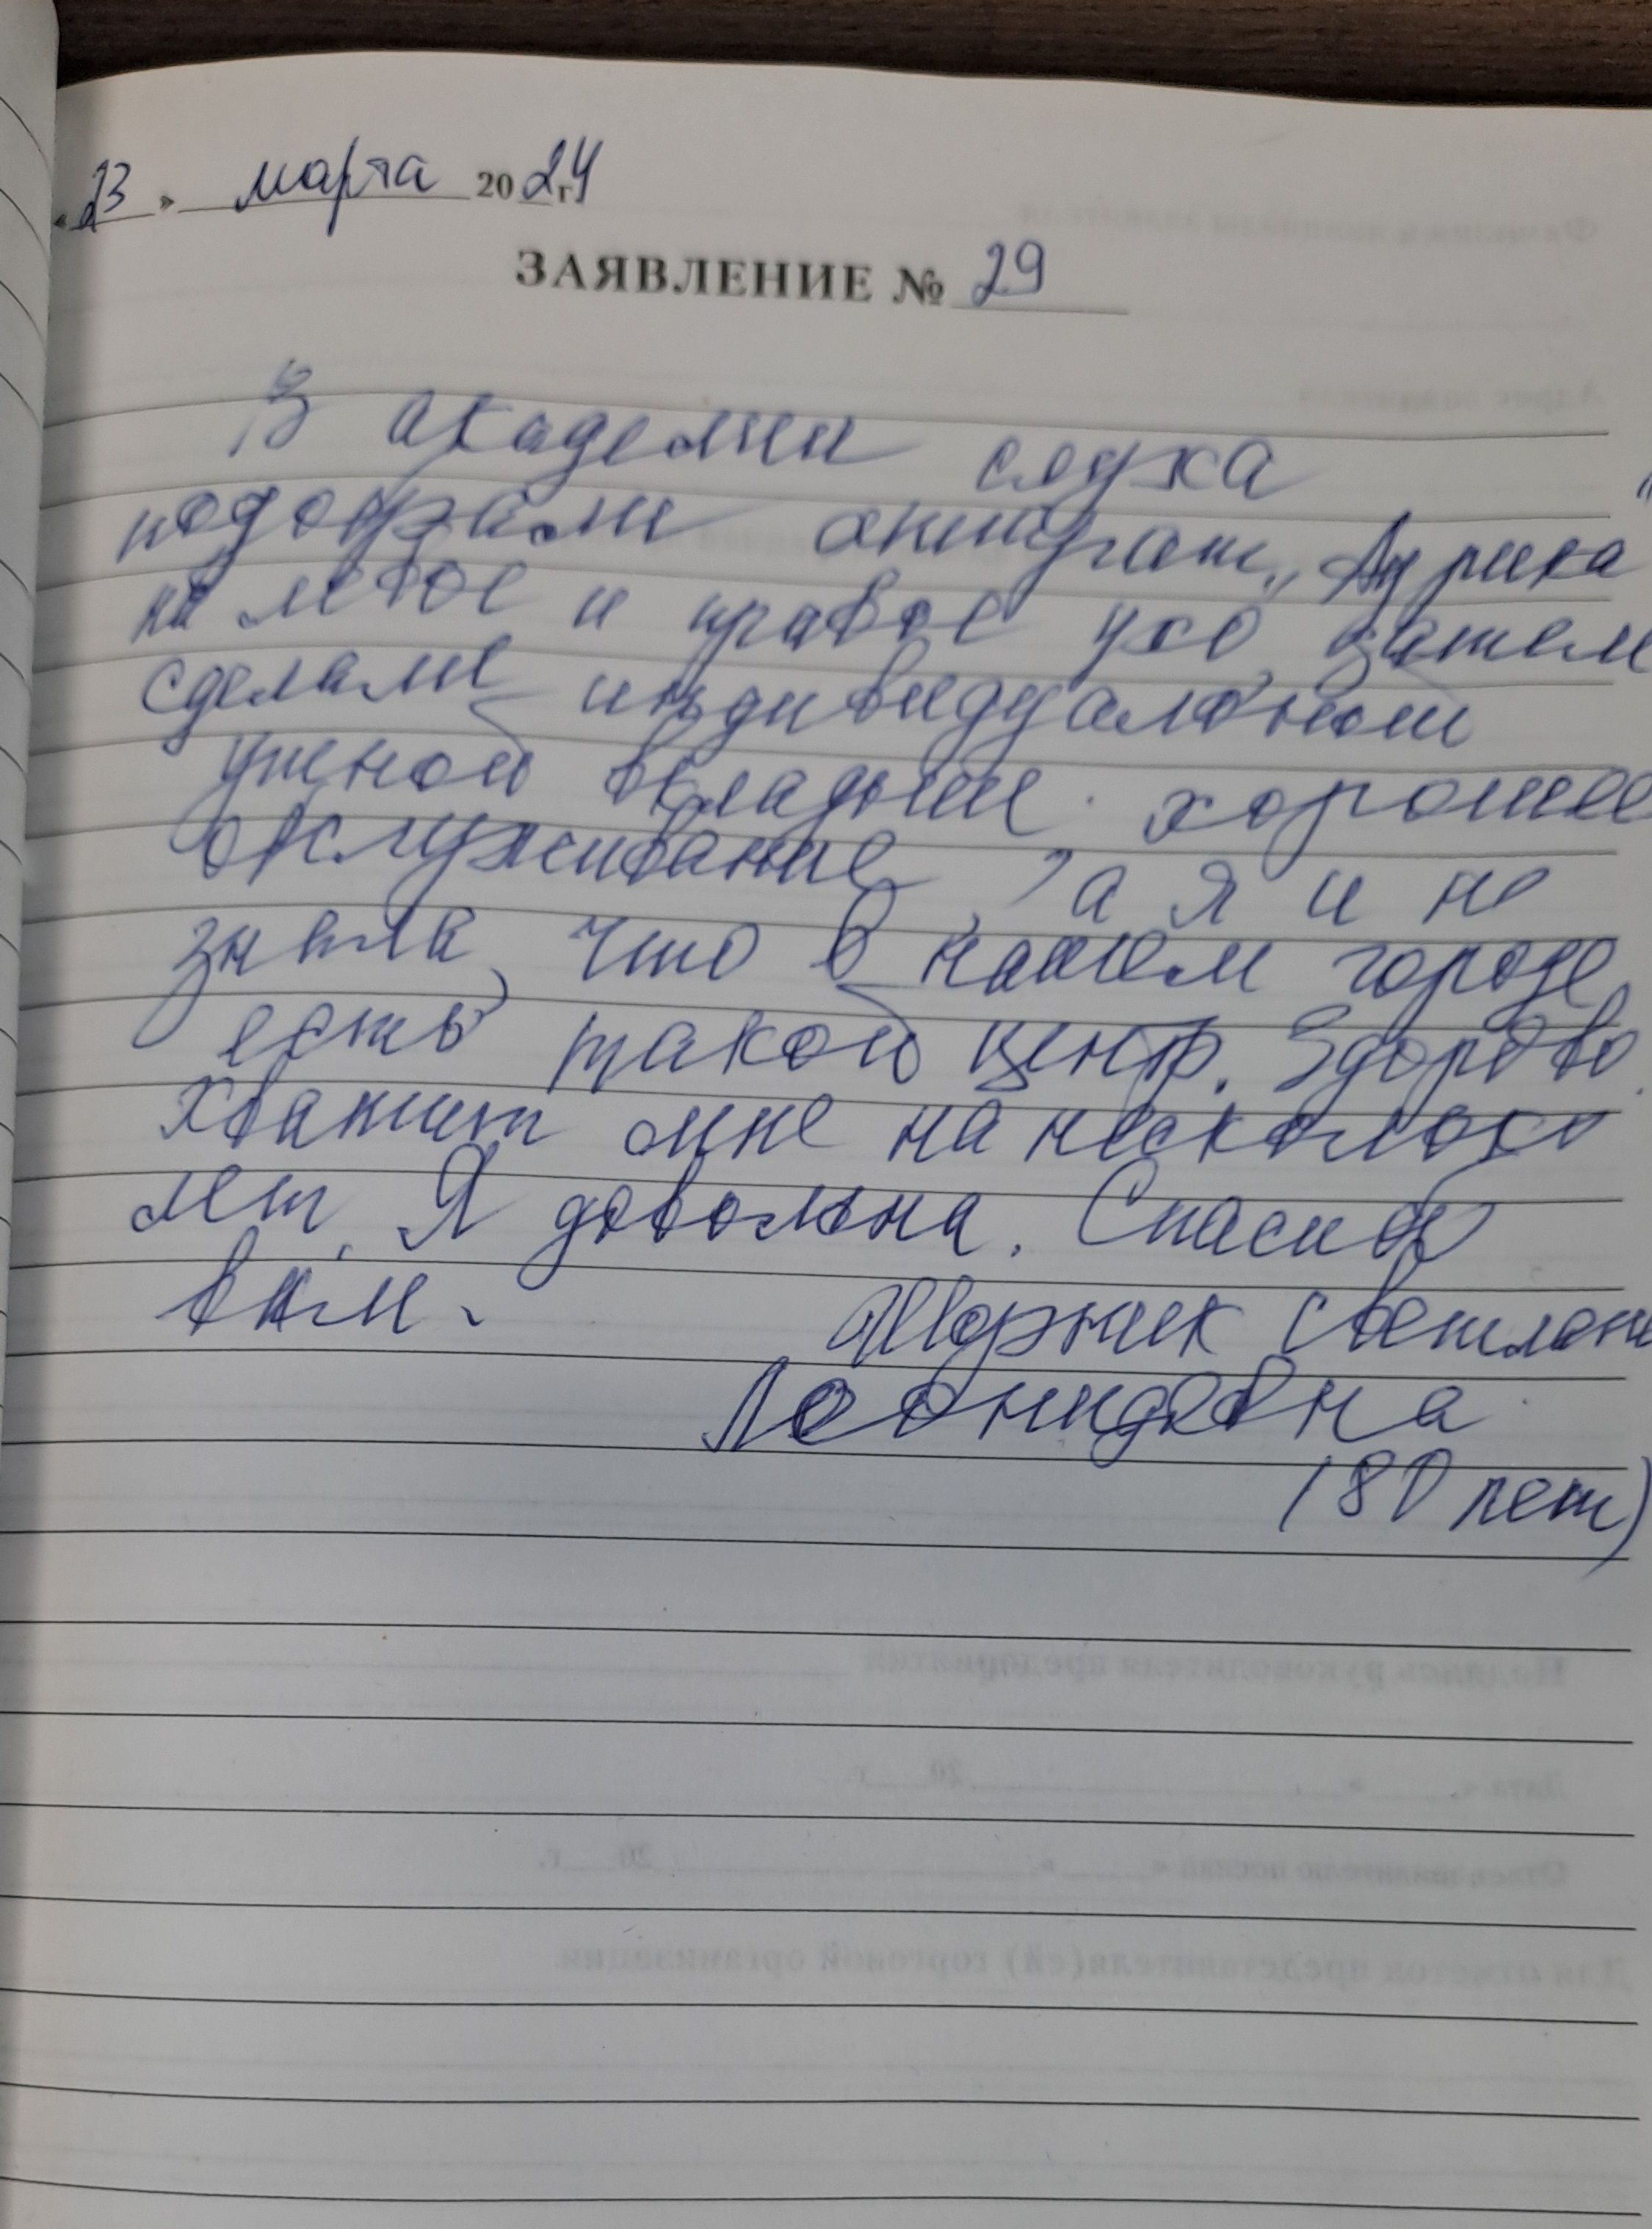 « 23 » марта 2024 г
ЗАЯВЛЕНИЕ № 29
В академии слуха
подобрали аппарат „Аурика"
на левое и правое ухо, затем
сделали индивидуальной
ушной вкладыш. хорошее
обслуживание, а я и не
знала, что в нашем городе
есть такой центр. Здорово.
хватит мне на несколько
лет. Я довольна. Спасибо
вам.
Светлана
Леонидовна
(80 лет)